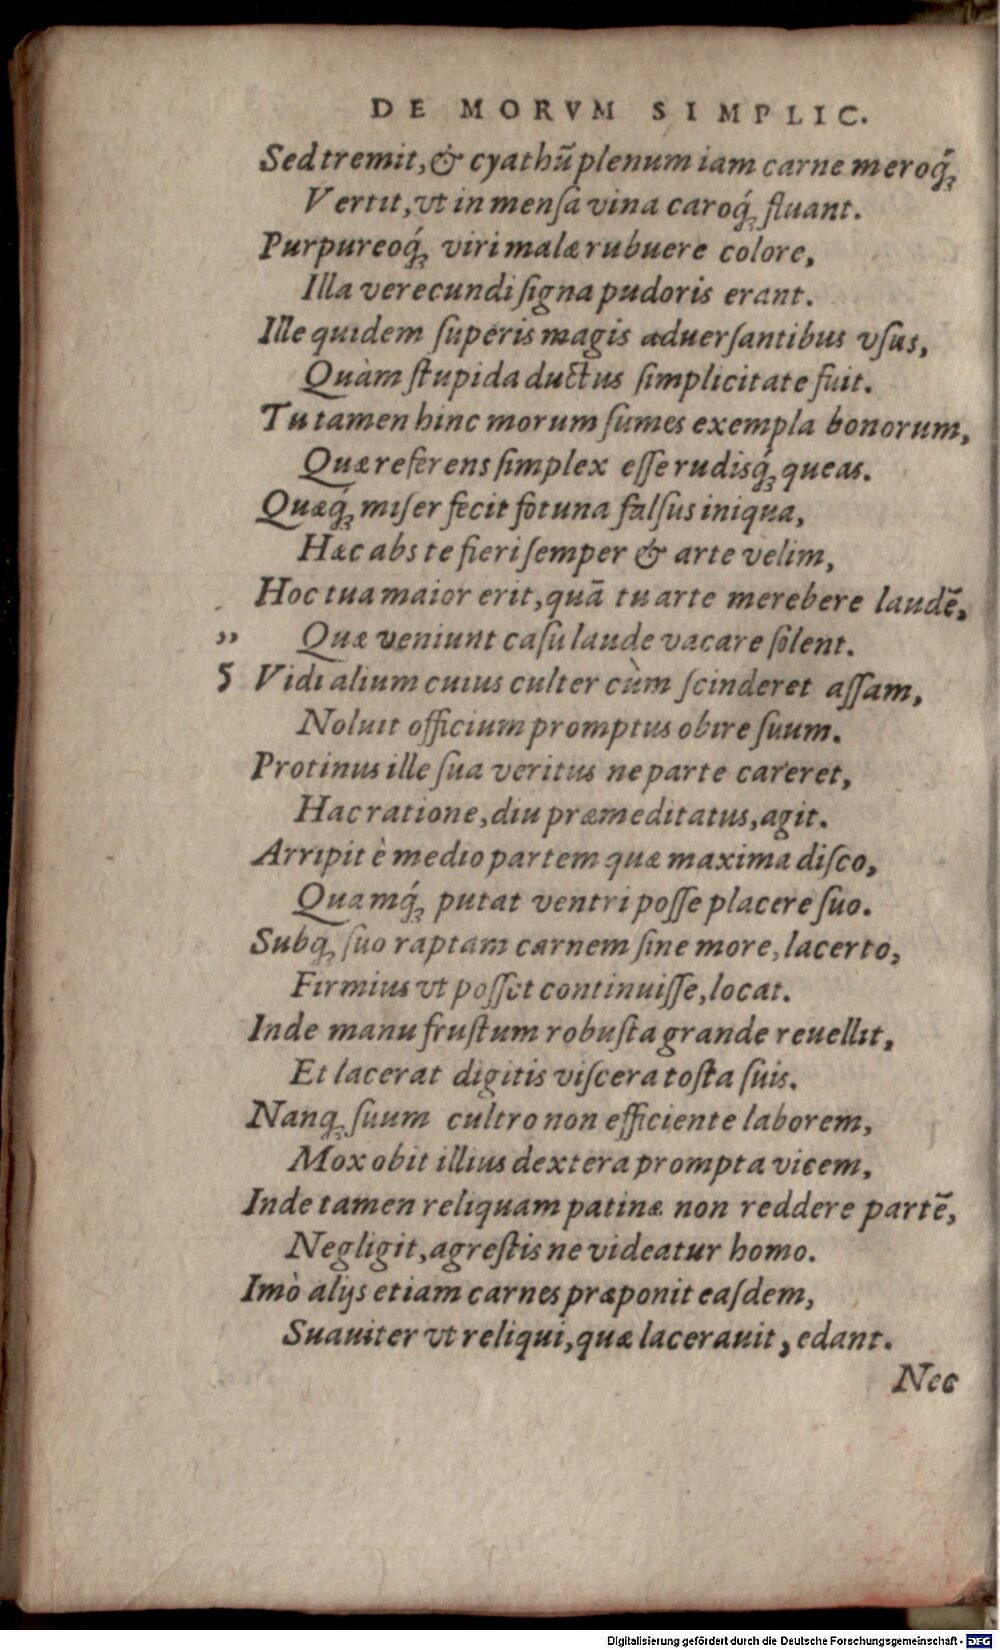 DE MORVM SIMPLIC.
Sed tremit, & cyathũ plenum iam carne meroq́ꝫ
Vertit, vt in menſa vina caroq́ꝫ fluant.
Purpureoq́ꝫ viri malæ rubuere colore,
Illa verecundi ſigna pudoris erant.
Ille quidem ſuperis magis aduerſantibus vſus,
Quàm ſtupida ductus ſimplicitate fuit.
Tu tamen hinc morum ſumes exempla bonorum,
Quæ referens ſimplex eſſe rudisq́ꝫ queas.
Quæq́ꝫ miſer fecit fotuna falſus iniqua,
Hæc abs te fieri ſemper & arte velim,
Hoc tua maior erit, quã tu arte merebere laudẽ,
„ Quæ veniunt caſu laude vacare ſolent.
5 Vidi alium cuius culter cùm ſcinderet aſſam,
Noluit officium promptus obire ſuum.
Protinus ille ſua veritus ne parte careret,
Hac ratione, diu præmeditatus, agit.
Arripit è medio partem quæ maxima diſco,
Quamq́ꝫ putat ventri poſſe placere ſuo.
Subqꝫ ſuo raptam carnem ſine more, lacerto,
Firmius vt poſſet continuiſſe, locat.
Inde manu fruſtum robuſta grande reuellit,
Et lacerat digitis viſcera toſta ſuis.
Nanqꝫ ſuum cultro non efficiente laborem,
Mox obit illius dextera prompta vicem,
Inde tamen reliquam patinæ non reddere partẽ,
Negligit, agreſtis ne videatur homo.
Imò alijs etiam carnes præponit eaſdem,
Suauiter vt reliqui, quæ lacerauit, edant.
Nec
Digitalisierung gefördert durch die Deutsche Forschungsgemeinschaft - DFG